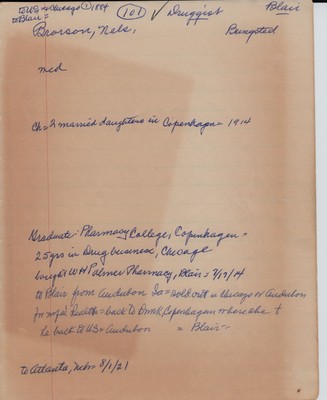 to US = Chicago © 1884 (101) ✓ Druggist Blair
to Blair =
Brorson, Nels, Bungsted
med
Ch = 2 married daughters in Copenhagen = 1914
Graduate: Pharmacy College, Copenhagen =
25 yrs in Drug business, Chicago
bought WH Palmer Pharmacy, Blair = 7/17/14
to Blair from Audubon Ia = sold out in Chicago & Audubon
for wife's health = back to Dmk, Copenhagen where she †
he back to US = Audubon = Blair =
to Atlanta, Nebr 8/1/21